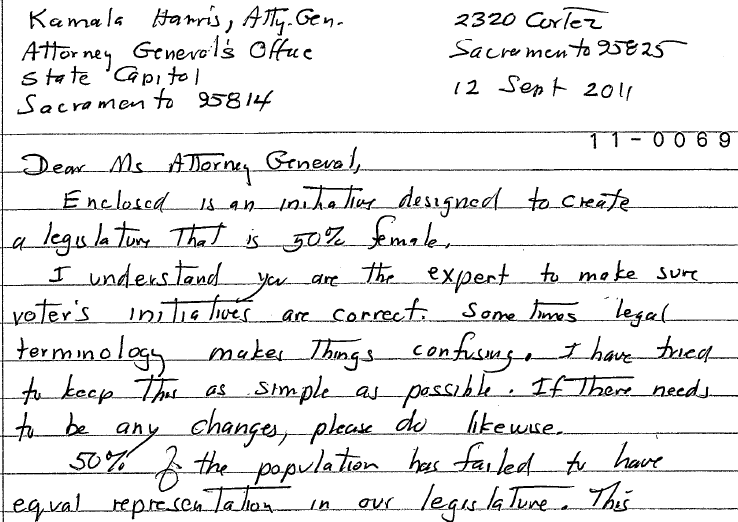 Kamala Harris, Atty. Gen.
Attorney General's Office
State Capitol
Sacramento 95814
2320 Cortez
Sacramento 95825
12 Sept 2011
11-0069
Dear Ms Attorney General,
Enclosed is an initiative designed to create
a legislature that is 50% female.
I understand you are the expert to make sure
voter's initiatives are correct. Some times legal
terminology makes things confusing. I have tried
to keep this as simple as possible. If there needs
to be any changes, please do likewise.
50% of the population has failed to have
equal representation in our legislature. This